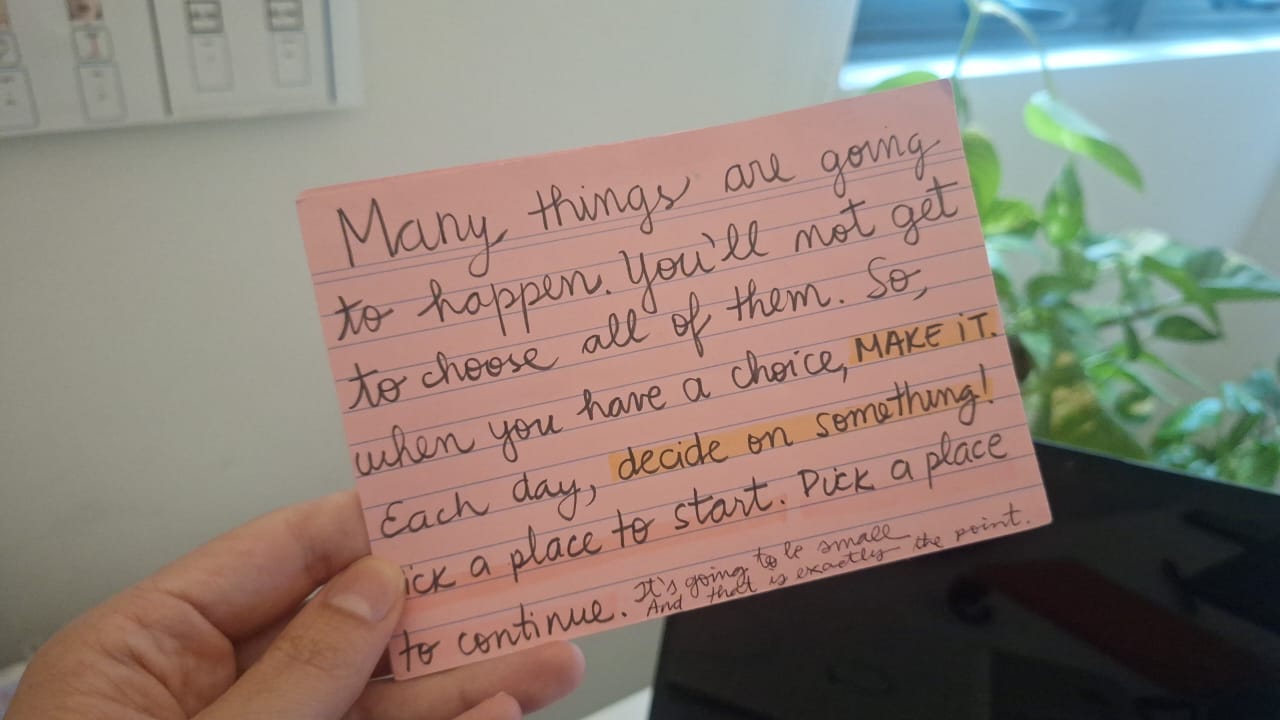 Many things are going
to happen. You'll not get
to choose all of them. So,
when you have a choice, MAKE iT.
Each day, decide on something!
ick a place to start. Pick a place
to continue. It's going to be small
And that is exactly the point.